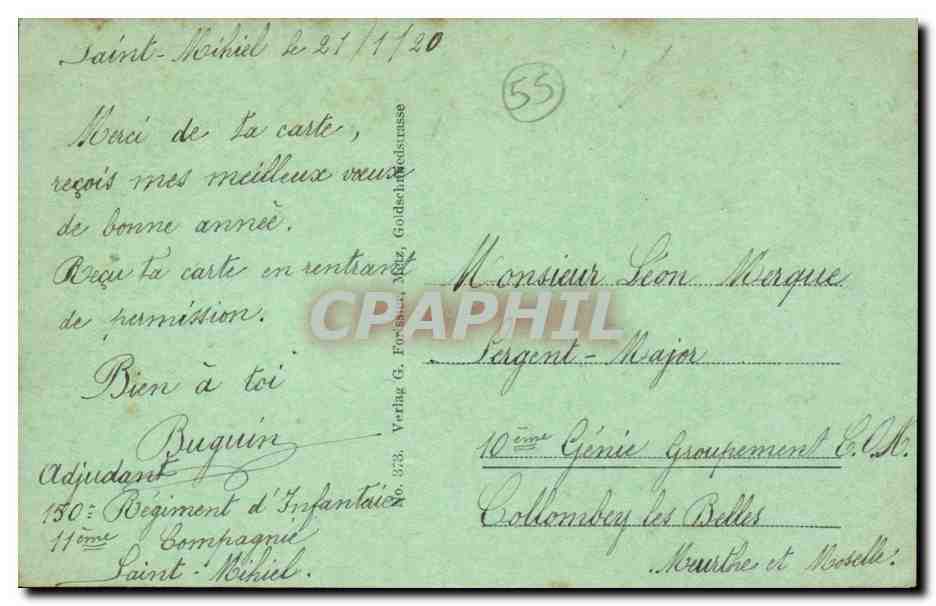 Saint-Mihiel le 21/1/20
Merci de ta carte,
reçois mes meilleux vœux
de bonne année.
Reçu ta carte en rentrant
de permission.
Bien à toi
Buguin
Adjudant
150e Régiment d'Infantaie
11ème Compagnie
Saint-Mihiel.
No. 373. Verlag G. Forissier, Metz, Goldschmiedstrasse
55
Monsieur Léon Merque
Sergent-Major
10ème Génie Groupement C.O.M.
Collombey les Belles
Meurthe et Moselle.
CPAPHIL